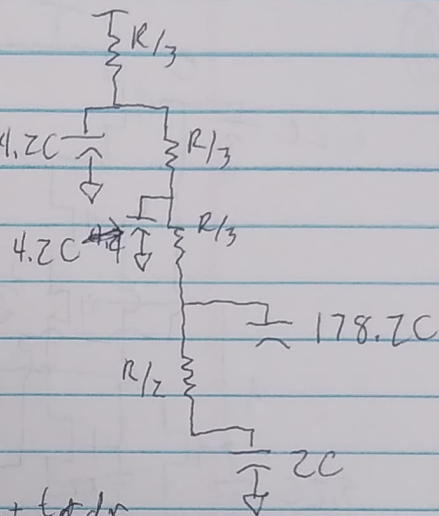 R/3
4.2C
R/3
4.2C
R/3
178.2C
R/2
2C
+